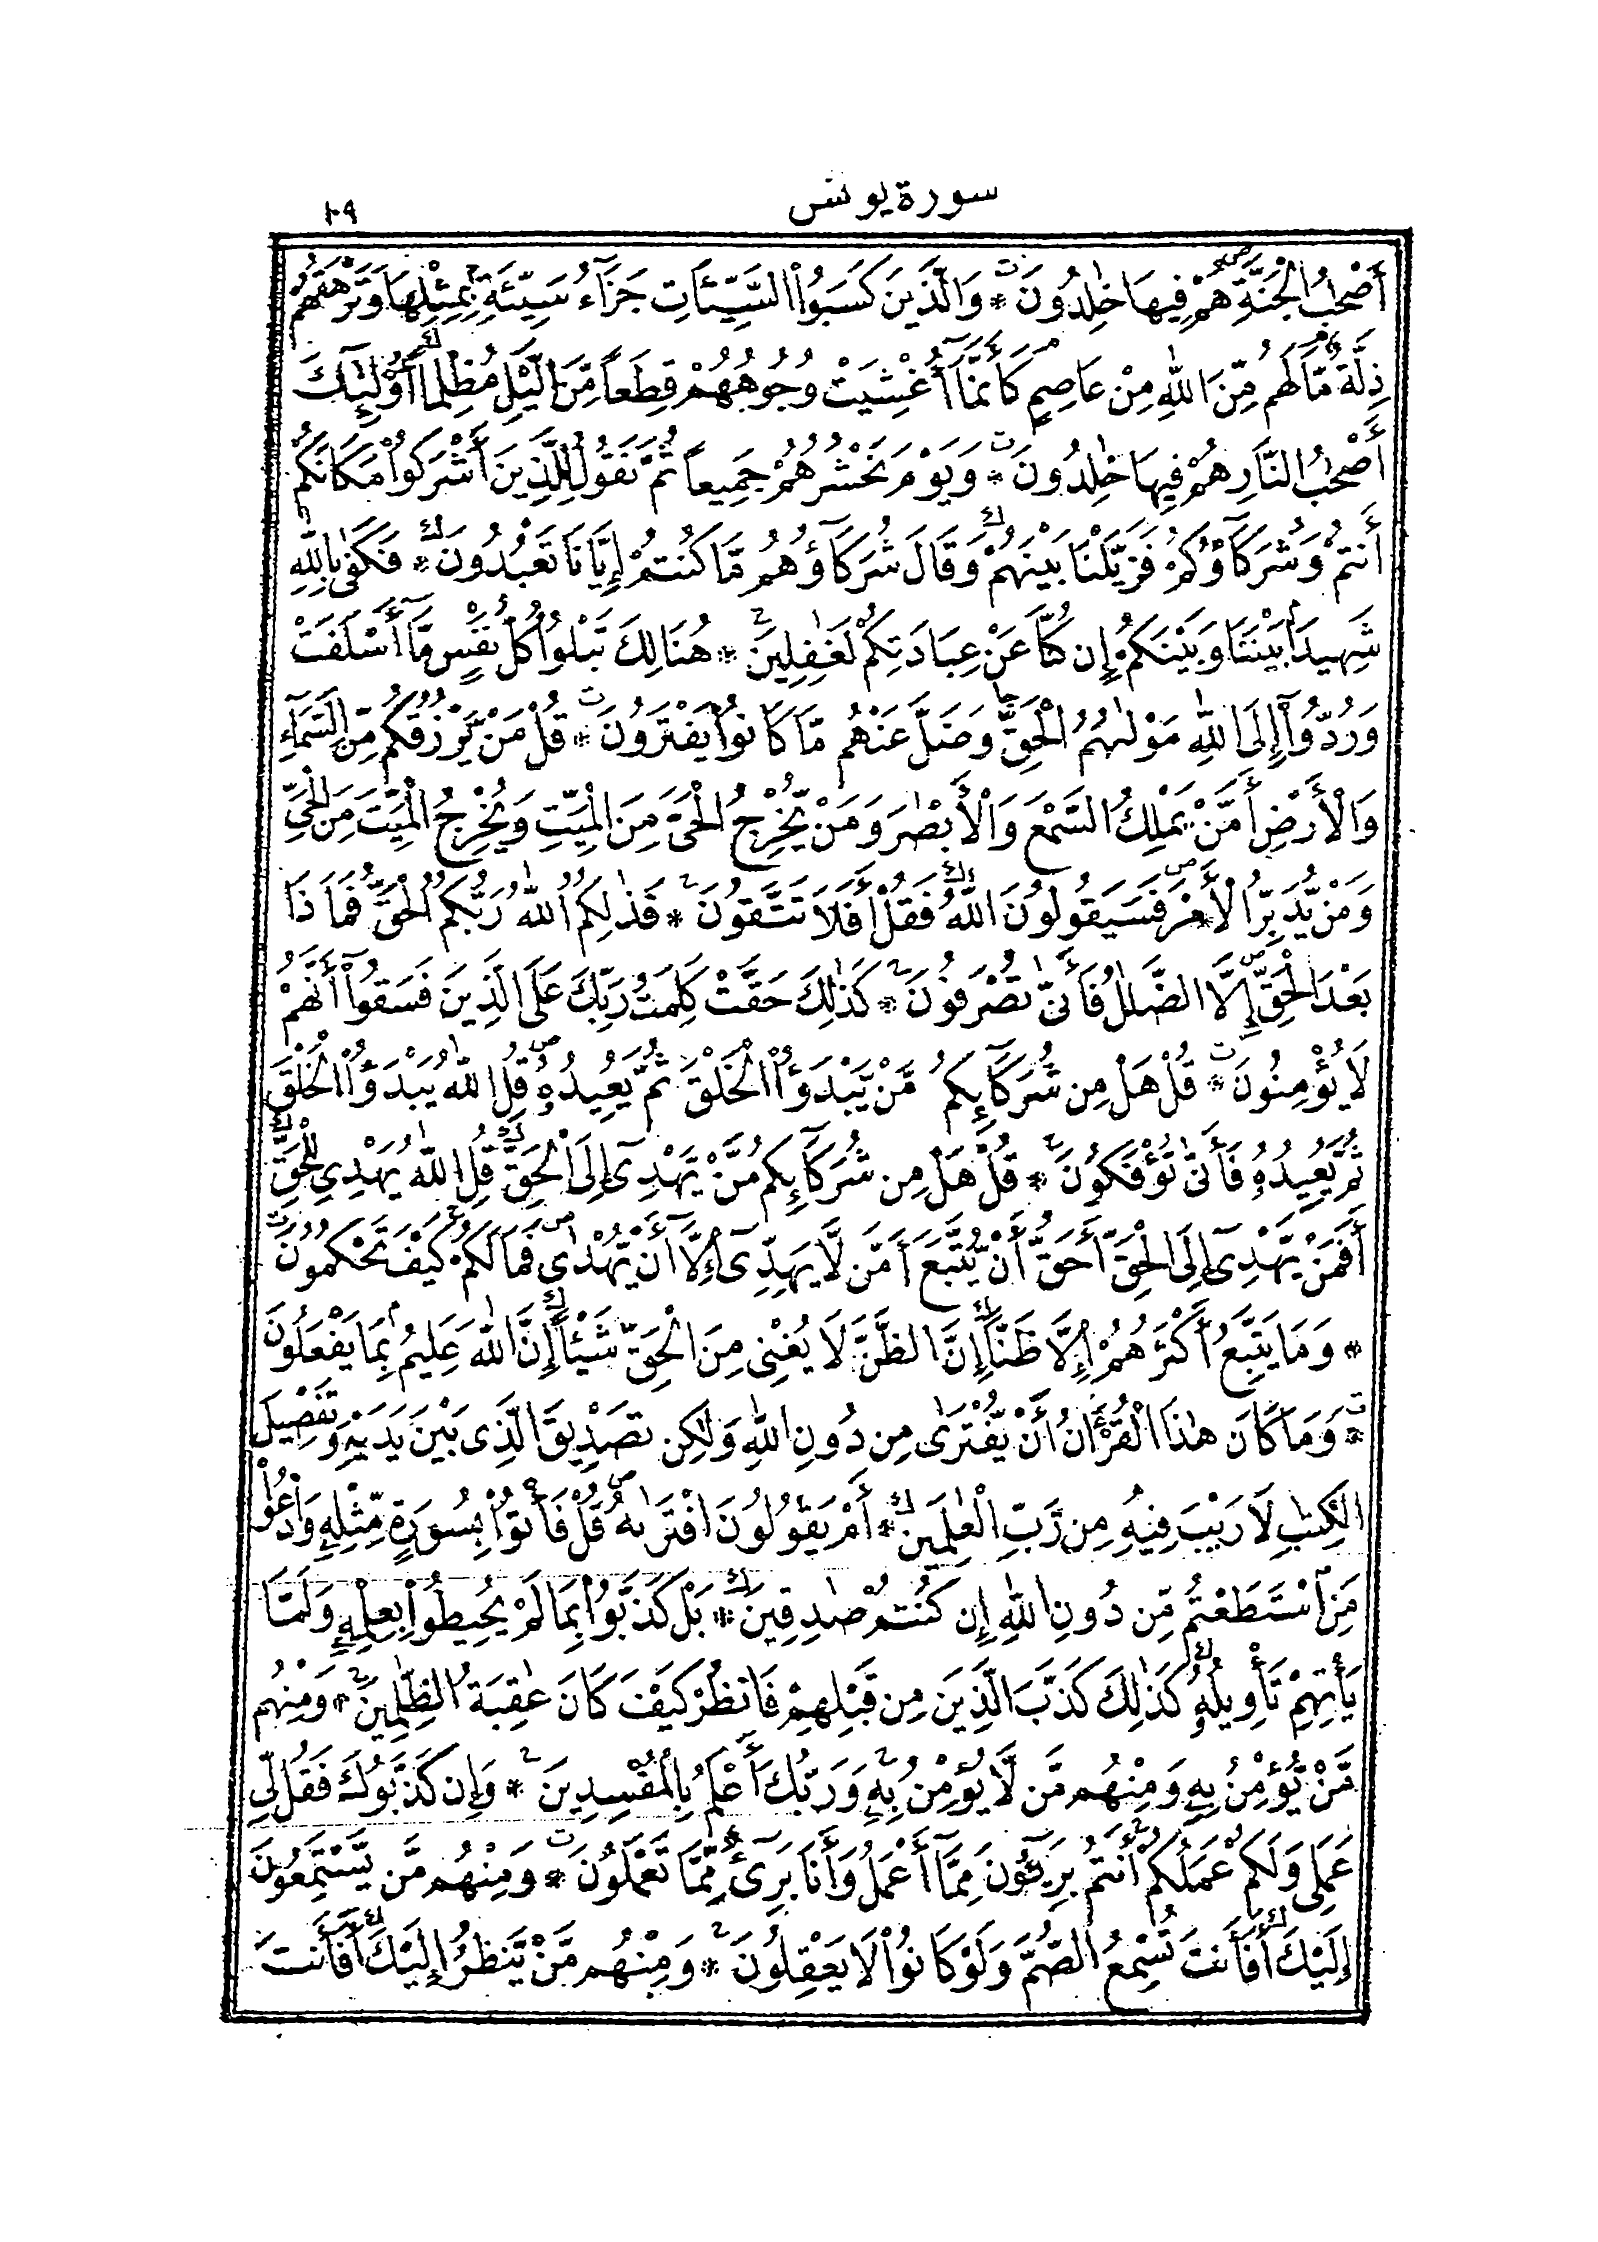 سورة يونس
١٠٩
أَصْحٰبُ الْجَنَّةِ هُمْ فِيهَا خٰلِدُونَ * وَالَّذِينَ كَسَبُوا۟ السَّيِّئَاتِ جَزَآءُ سَيِّئَةٍ بِمِثْلِهَا وَتَرْهَقُهُمْ
ذِلَّةٌ مَّا لَهُم مِّنَ اللّٰهِ مِنْ عَاصِمٍ كَأَنَّمَآ أُغْشِيَتْ وُجُوهُهُمْ قِطَعاً مِّنَ الَّيْلِ مُظْلِماً أُوْلَٰٓئِكَ
أَصْحٰبُ النَّارِ هُمْ فِيهَا خٰلِدُونَ * وَيَوْمَ نَحْشُرُهُمْ جَمِيعاً ثُمَّ نَقُولُ لِلَّذِينَ أَشْرَكُوا۟ مَكَانَكُمْ
أَنتُمْ وَشُرَكَآؤُكُمْ فَزَيَّلْنَا بَيْنَهُمْ وَقَالَ شُرَكَآؤُهُم مَّا كُنتُمْ إِيَّانَا تَعْبُدُونَ * فَكَفَىٰ بِاللّٰهِ
شَهِيدَاۢ بَيْنَنَا وَبَيْنَكُمْ إِن كُنَّا عَنْ عِبَادَتِكُمْ لَغٰفِلِينَ * هُنَالِكَ تَبْلُوا۟ كُلُّ نَفْسٍ مَّآ أَسْلَفَتْ
وَرُدُّوٓا۟ إِلَى اللّٰهِ مَوْلَىٰهُمُ الْحَقِّ وَضَلَّ عَنْهُم مَّا كَانُوا۟ يَفْتَرُونَ * قُلْ مَنْ يَّرْزُقُكُم مِّنَ السَّمَآءِ
وَالْأَرْضِ أَمَّنْ يَّمْلِكُ السَّمْعَ وَالْأَبْصٰرَ وَمَنْ يُّخْرِجُ الْحَىَّ مِنَ الْمَيِّتِ وَيُخْرِجُ الْمَيِّتَ مِنَ الْحَىِّ
وَمَنْ يُّدَبِّرُ الْأَمْرَ فَسَيَقُولُونَ اللّٰهُ فَقُلْ أَفَلَا تَتَّقُونَ * فَذٰلِكُمُ اللّٰهُ رَبُّكُمُ الْحَقُّ فَمَاذَا
بَعْدَ الْحَقِّ إِلَّا الضَّلٰلُ فَأَنَّىٰ تُصْرَفُونَ * كَذٰلِكَ حَقَّتْ كَلِمَتُ رَبِّكَ عَلَى الَّذِينَ فَسَقُوٓا۟ أَنَّهُمْ
لَا يُؤْمِنُونَ * قُلْ هَلْ مِن شُرَكَآئِكُم مَّنْ يَّبْدَؤُا۟ الْخَلْقَ ثُمَّ يُعِيدُهُۥ قُلِ اللّٰهُ يَبْدَؤُا۟ الْخَلْقَ
ثُمَّ يُعِيدُهُۥ فَأَنَّىٰ تُؤْفَكُونَ * قُلْ هَلْ مِن شُرَكَآئِكُم مَّنْ يَّهْدِىٓ إِلَى الْحَقِّ قُلِ اللّٰهُ يَهْدِى لِلْحَقِّ
أَفَمَنْ يَّهْدِىٓ إِلَى الْحَقِّ أَحَقُّ أَنْ يُّتَّبَعَ أَمَّن لَّا يَهِدِّىٓ إِلَّآ أَنْ يُّهْدَىٰ فَمَا لَكُمْ كَيْفَ تَحْكُمُونَ
* وَمَا يَتَّبِعُ أَكْثَرُهُمْ إِلَّا ظَنّاً إِنَّ الظَّنَّ لَا يُغْنِى مِنَ الْحَقِّ شَيْئاً إِنَّ اللّٰهَ عَلِيمُۢ بِمَا يَفْعَلُونَ
* وَمَا كَانَ هٰذَا الْقُرْءَانُ أَنْ يُّفْتَرَىٰ مِن دُونِ اللّٰهِ وَلٰكِن تَصْدِيقَ الَّذِى بَيْنَ يَدَيْهِ وَتَفْصِيلَ
الْكِتٰبِ لَا رَيْبَ فِيهِ مِن رَّبِّ الْعٰلَمِينَ * أَمْ يَقُولُونَ افْتَرَىٰهُ قُلْ فَأْتُوا۟ بِسُورَةٍ مِّثْلِهِۦ وَادْعُوا۟
مَنِ اسْتَطَعْتُم مِّن دُونِ اللّٰهِ إِن كُنتُمْ صٰدِقِينَ * بَلْ كَذَّبُوا۟ بِمَا لَمْ يُحِيطُوا۟ بِعِلْمِهِۦ وَلَمَّا
يَأْتِهِمْ تَأْوِيلُهُۥ كَذٰلِكَ كَذَّبَ الَّذِينَ مِن قَبْلِهِمْ فَانظُرْ كَيْفَ كَانَ عٰقِبَةُ الظّٰلِمِينَ * وَمِنْهُم
مَّنْ يُّؤْمِنُ بِهِۦ وَمِنْهُم مَّن لَّا يُؤْمِنُ بِهِۦ وَرَبُّكَ أَعْلَمُ بِالْمُفْسِدِينَ * وَإِن كَذَّبُوكَ فَقُل لِّى
عَمَلِى وَلَكُمْ عَمَلُكُمْ أَنتُم بَرِيٓئُونَ مِمَّآ أَعْمَلُ وَأَنَا۠ بَرِىٓءٌ مِّمَّا تَعْمَلُونَ * وَمِنْهُم مَّن يَّسْتَمِعُونَ
إِلَيْكَ أَفَأَنتَ تُسْمِعُ الصُّمَّ وَلَوْ كَانُوا۟ لَا يَعْقِلُونَ * وَمِنْهُم مَّنْ يَّنظُرُ إِلَيْكَ أَفَأَنتَ